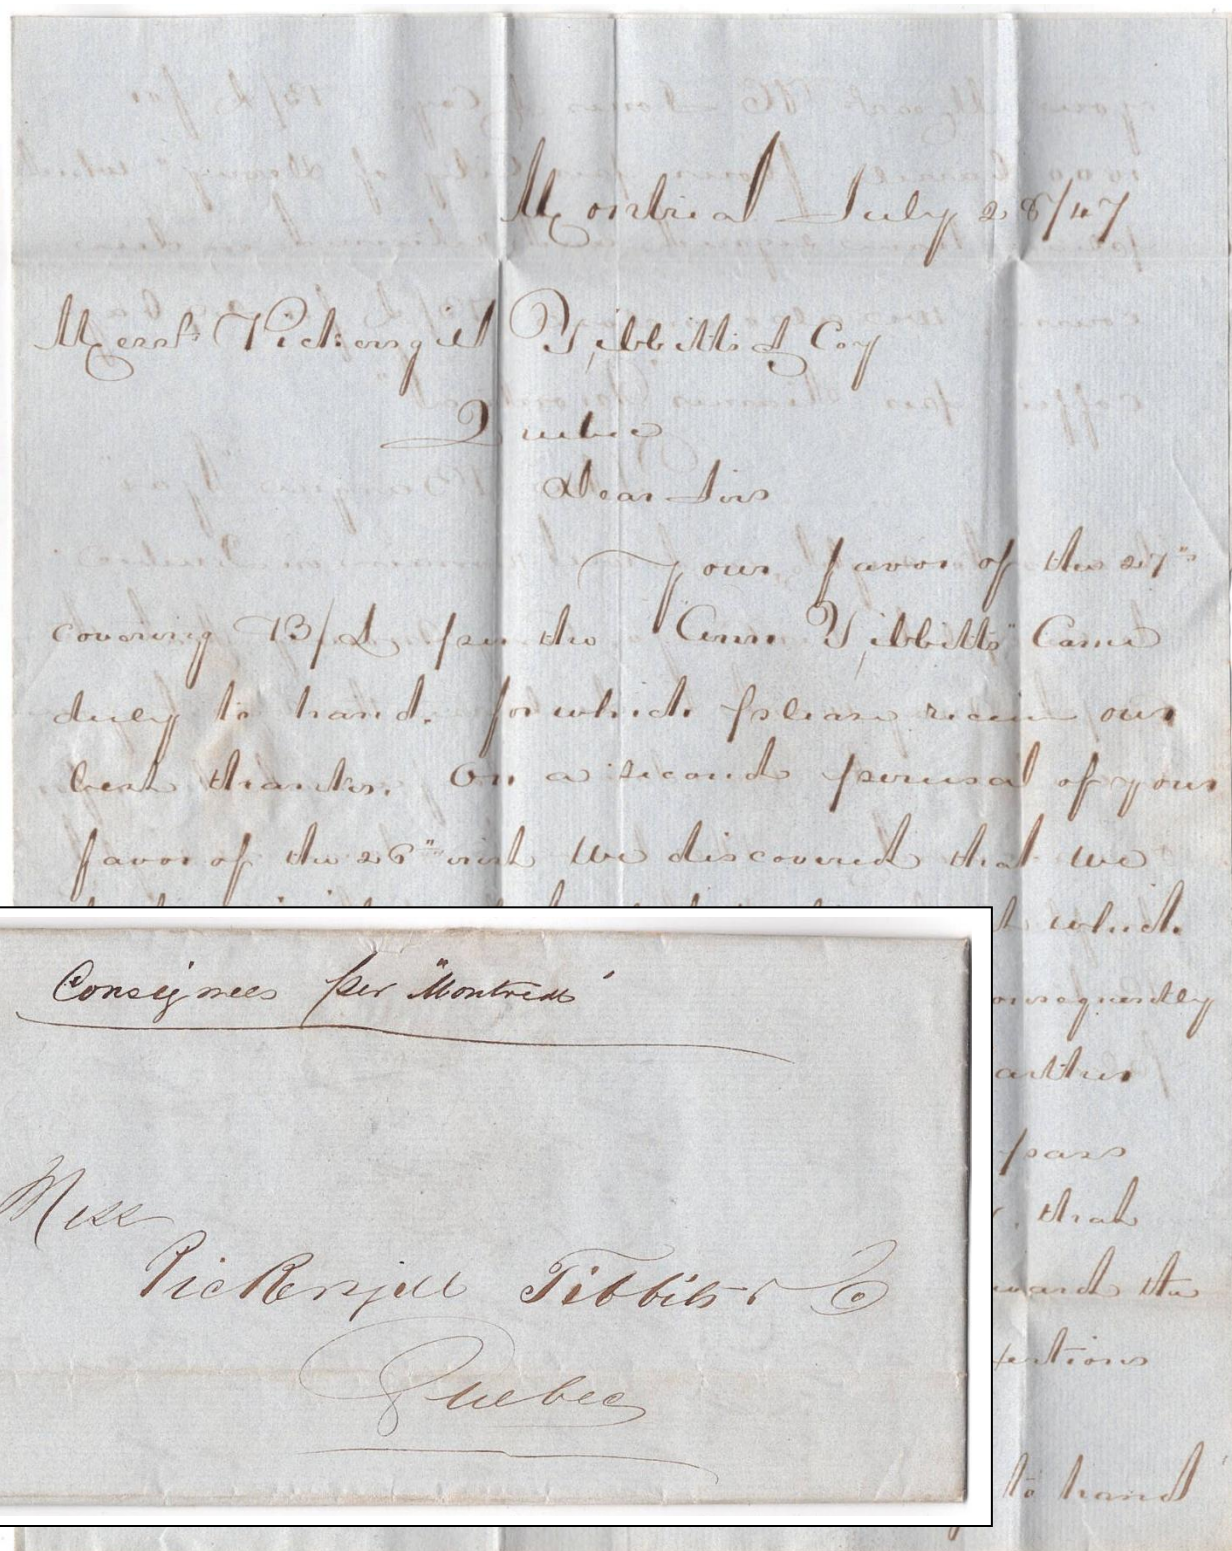 Montreal July 28/47
Messrs Pickersgill Tibbitts & Coy
Quebec
Dear Sirs
Your favor of the 27th
covering B/L per the "Ann Tibbitts" Came
duly to hand. for which please receive our
best thanks. On a second perusal of your
favor of the 26th inst we discovered that we
which
onsequently
pass
that
ward the
to hand
Consignees per "Montreal"
Mess
Pickersgill Tibbits & Co
Quebec